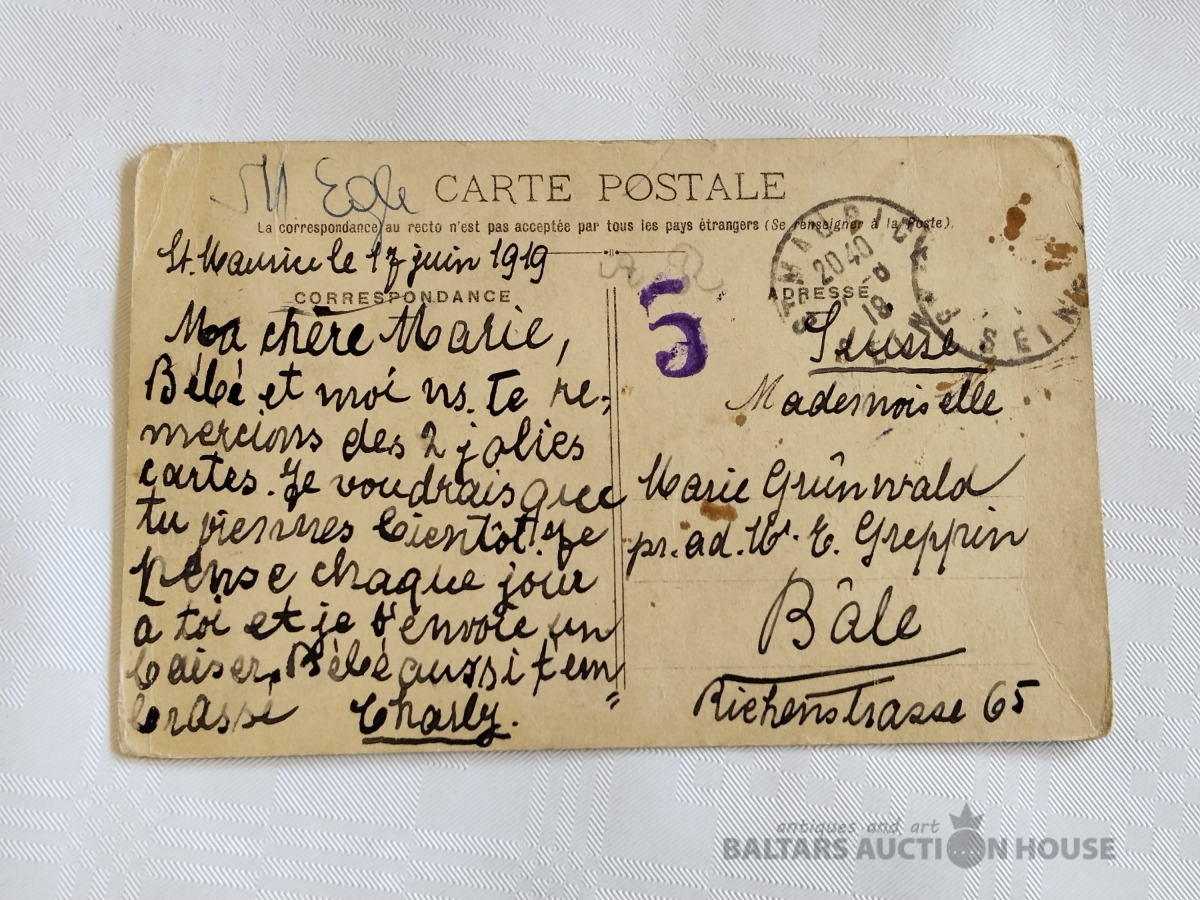 CARTE POSTALE
La correspondance au recto n'est pas acceptée par tous les pays étrangers (Se renseigner à la Poste).
St. Maurice le 17 juin 1919
CORRESPONDANCE
Ma chère Marie,
Bébé et moi ns. te re-
mercions des 2 jolies
cartes. Je voudrais que
tu viennes bientôt! Je
pense chaque jour
à toi et je t'envoie un
baiser. Bébé aussi t'em
brasse Charly.
5
ADRESSE
Suisse
Mademoiselle
Marie Grûnwald
pr. ad. Mr. E. Greppin
Bâle
Richenstrasse 65
20 40
SEINE
antiques and art
BALTARS AUCTION HOUSE